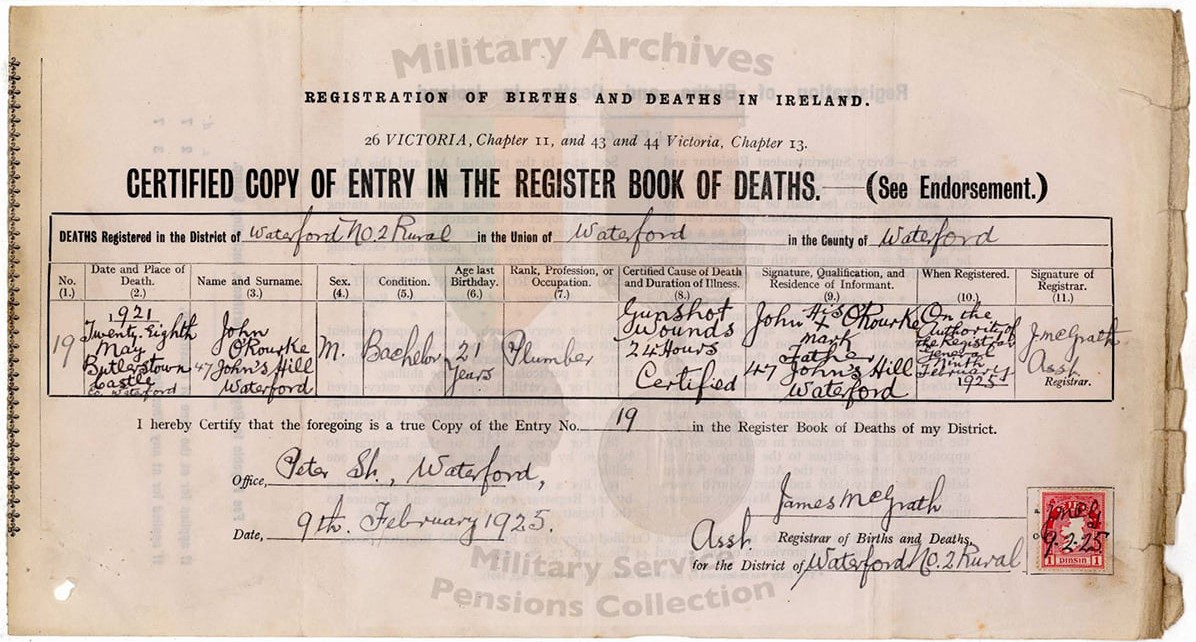 Military Archives
REGISTRATION OF BIRTHS AND DEATHS IN IRELAND.
26 VICTORIA, Chapter 11, and 43 and 44 Victoria, Chapter 13.
CERTIFIED COPY OF ENTRY IN THE REGISTER BOOK OF DEATHS.—(See Endorsement.)
DEATHS Registered in the District of Waterford No. 2 Rural in the Union of Waterford in the County of Waterford
No. (1.)
Date and Place of Death. (2.)
Name and Surname. (3.)
Sex. (4.)
Condition. (5.)
Age last Birthday. (6.)
Rank, Profession, or Occupation. (7.)
Certified Cause of Death and Duration of Illness. (8.)
Signature, Qualification, and Residence of Informant. (9.)
When Registered. (10.)
Signature of Registrar. (11.)
19
1921
Twenty Eighth
May
Butlerstown
Castle
Co. Waterford
John
O'Rourke
47 John's Hill
Waterford
M.
Bachelor
21
Years
Plumber
Gunshot
Wounds
24 Hours
Certified
John His X O'Rourke
mark
Father
47 John's Hill
Waterford
On the
Authority of
the Registrar
General
Ninth
February
1925
J. McGrath
Asst.
Registrar.
I hereby Certify that the foregoing is a true Copy of the Entry No. 19 in the Register Book of Deaths of my District.
Office, Peter St., Waterford,
Date, 9th. February 1925.
James McGrath
Asst. Registrar of Births and Deaths,
for the District of Waterford No. 2 Rural
J McG
9.2.25
1 PINSIN 1
Military Service
Pensions Collection